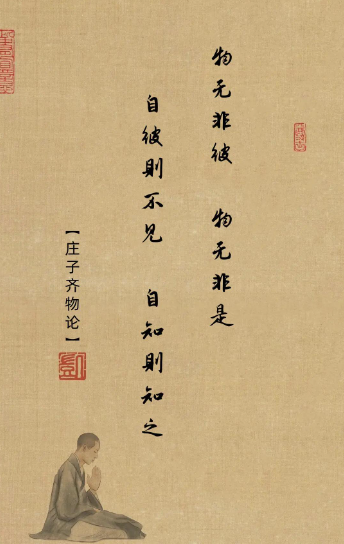 物无非彼 物无非是
自彼则不见 自知则知之
【庄子齐物论】